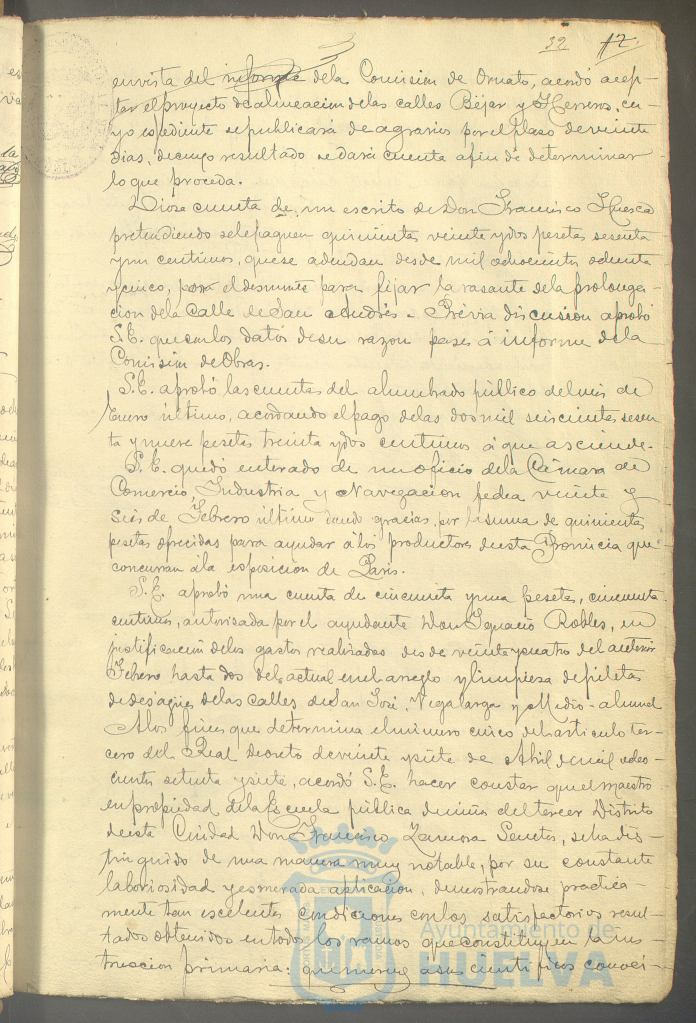 32 12.
en vista del informe de la Comision de Ornato, acordó acep-
tar el proyecto de alineacion de las calles Béjar y Herrero, cu-
yo espediente se publicará de agravios por el plazo de veinte
dias, de cuyo resultado se dará cuenta a fin de determinar
lo que proceda.
Diose cuenta de un escrito de Don Francisco Huesca
pretendiendo se le paguen quinientas veinte y dos pesetas sesenta
y un centimos, que se adeudan desde mil ochocientos ochenta
y cinco, por el desmonte para fijar la rasante de la prolonga-
cion de la Calle de San Andrés. Prévia discusion aprobó
S.E. que con los datos de su razon pase á informe de la
Comisión de Obras.
S.E. aprobó las cuentas del alumbrado público del mes de
Enero último, acordando el pago de las dos mil seiscientas sesen
ta y nueve pesetas treinta y dos centimos á que asciende.
S.E. quedó enterado de un oficio de la Cámara de
Comercio, Industria y Navegacion fecha veinte y
seis de Febrero último dando gracias, por la suma de quinientas
pesetas ofrecidas para ayudar á los productores de esta Provincia que
concurran á la esposicion de Paris.
S.E. aprobó una cuenta de cincuenta y una pesetas, cincuenta
centimos, autorizada por el ayudante Don Ignacio Robles, en
justificacion de los gastos realizados desde veinte y cuatro del anterior
Febrero hasta dos del actual en el arreglo y limpieza de piletas
de desagües de las calles de San José, Vegalarga y Medio-almud
A los fines que determina el número cinco del articulo ter-
cero del Real Decreto de veinte y siete de Abril de mil ocho-
cientos setenta y siete, acordó S.E. hacer constar que el maestro
en propiedad de la Escuela pública de niños del tercer Distrito
de esta Ciudad Don Francisco Zamora se ha dis-
tinguido de una manera muy notable, por su constante
laboriosidad y esmerada aplicacion, demostrandose practica-
mente tan escelentes condiciones con los satisfactorios resul-
tados obtenidos en todos los ramos que constituyen la ins-
truccion primaria: que merced á sus cientificos conoci-
Ayuntamiento de
HUELVA